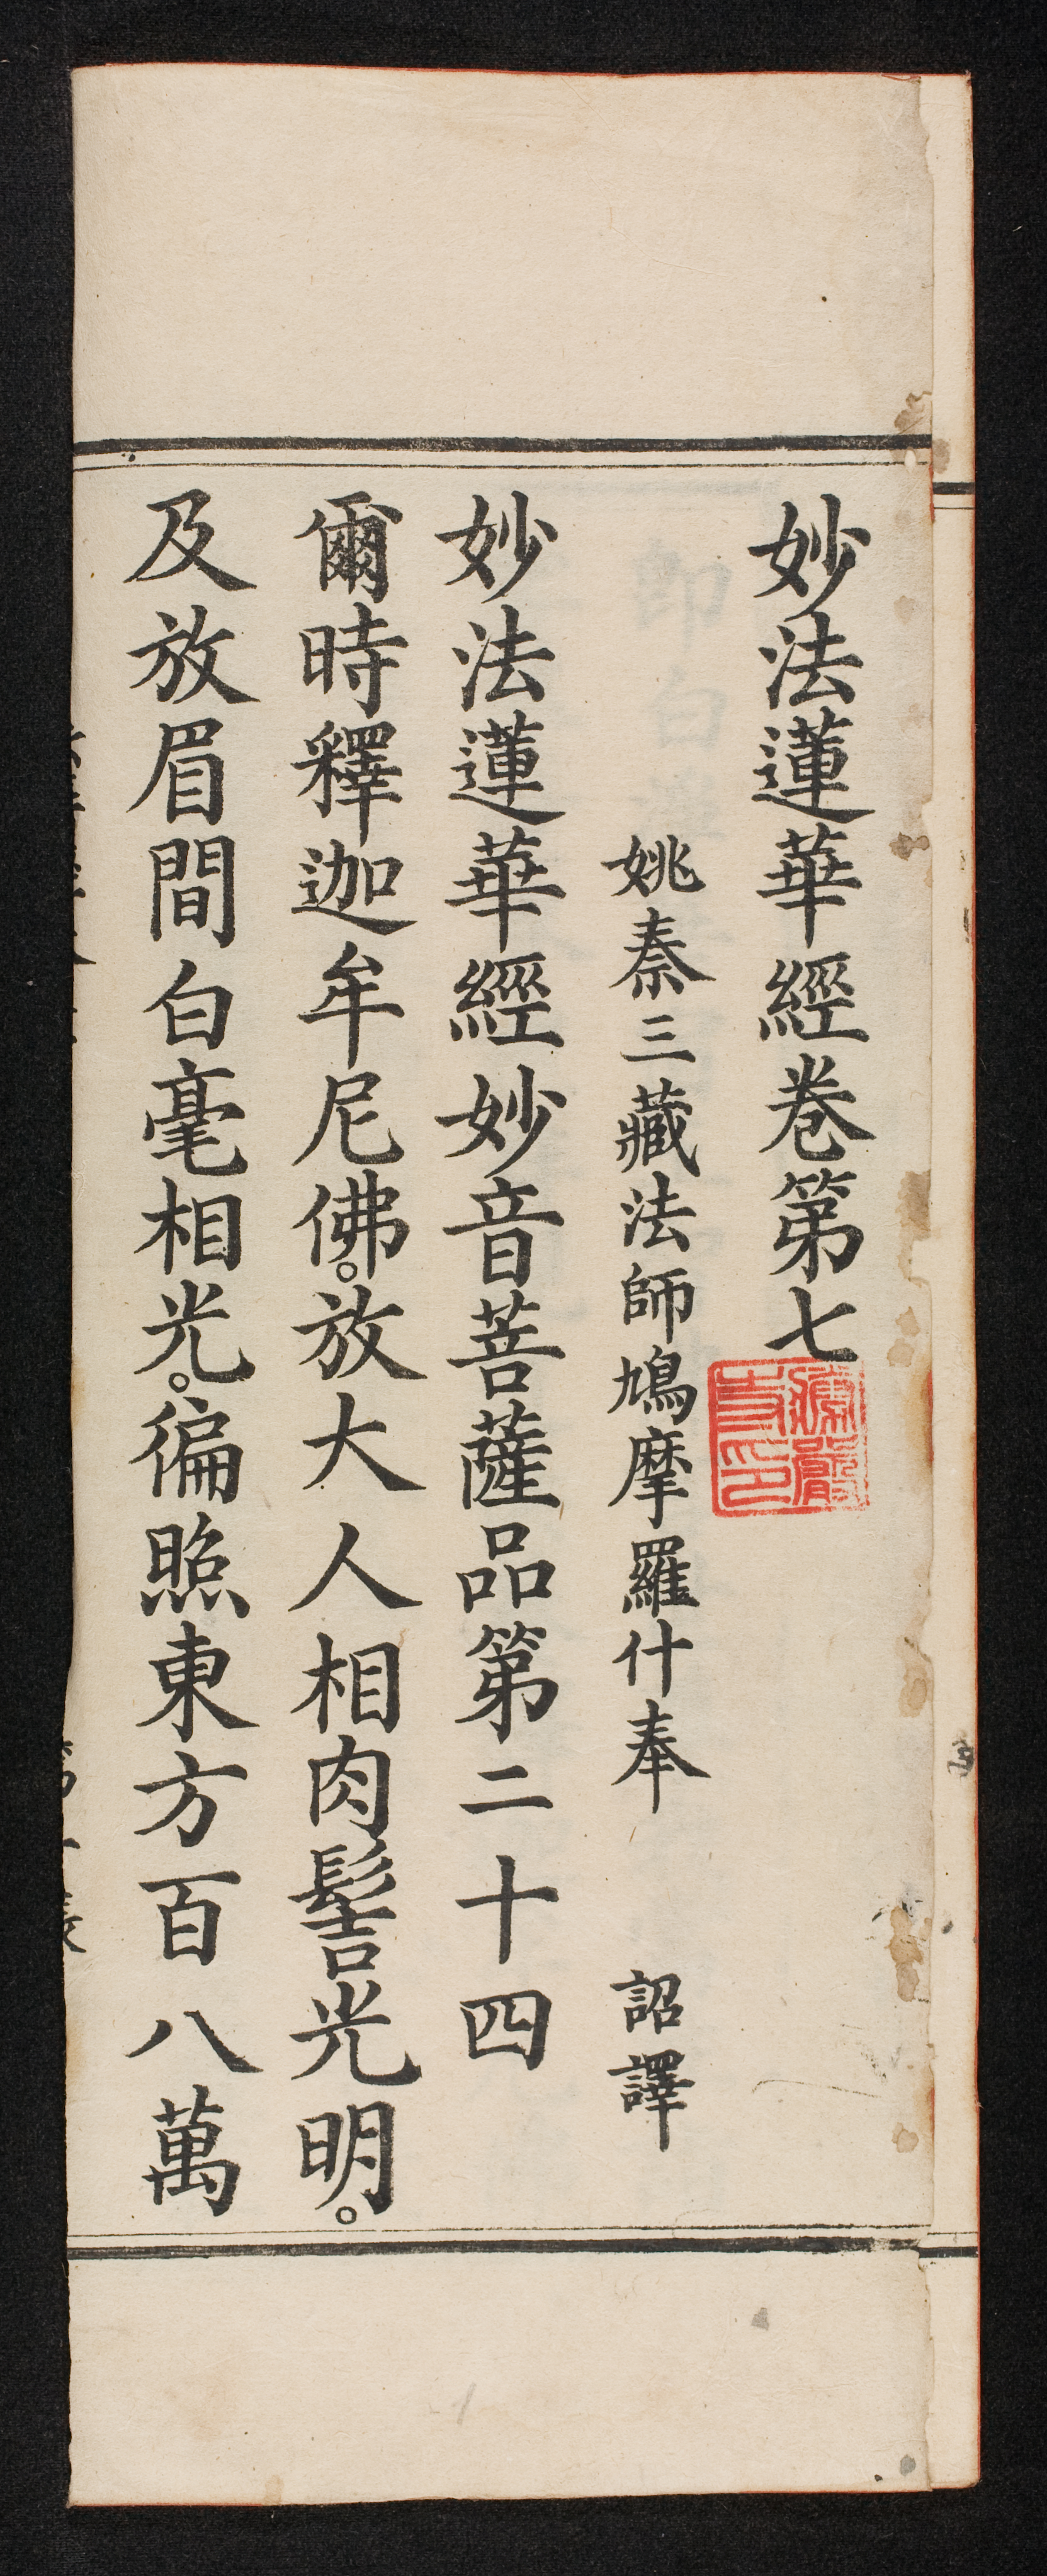 妙法蓮華經卷第七
姚秦三藏法師鳩摩羅什奉 詔譯
妙法蓮華經妙音菩薩品第二十四
爾時釋迦牟尼佛。放大人相肉髻光明。
及放眉間白毫相光。徧照東方百八萬